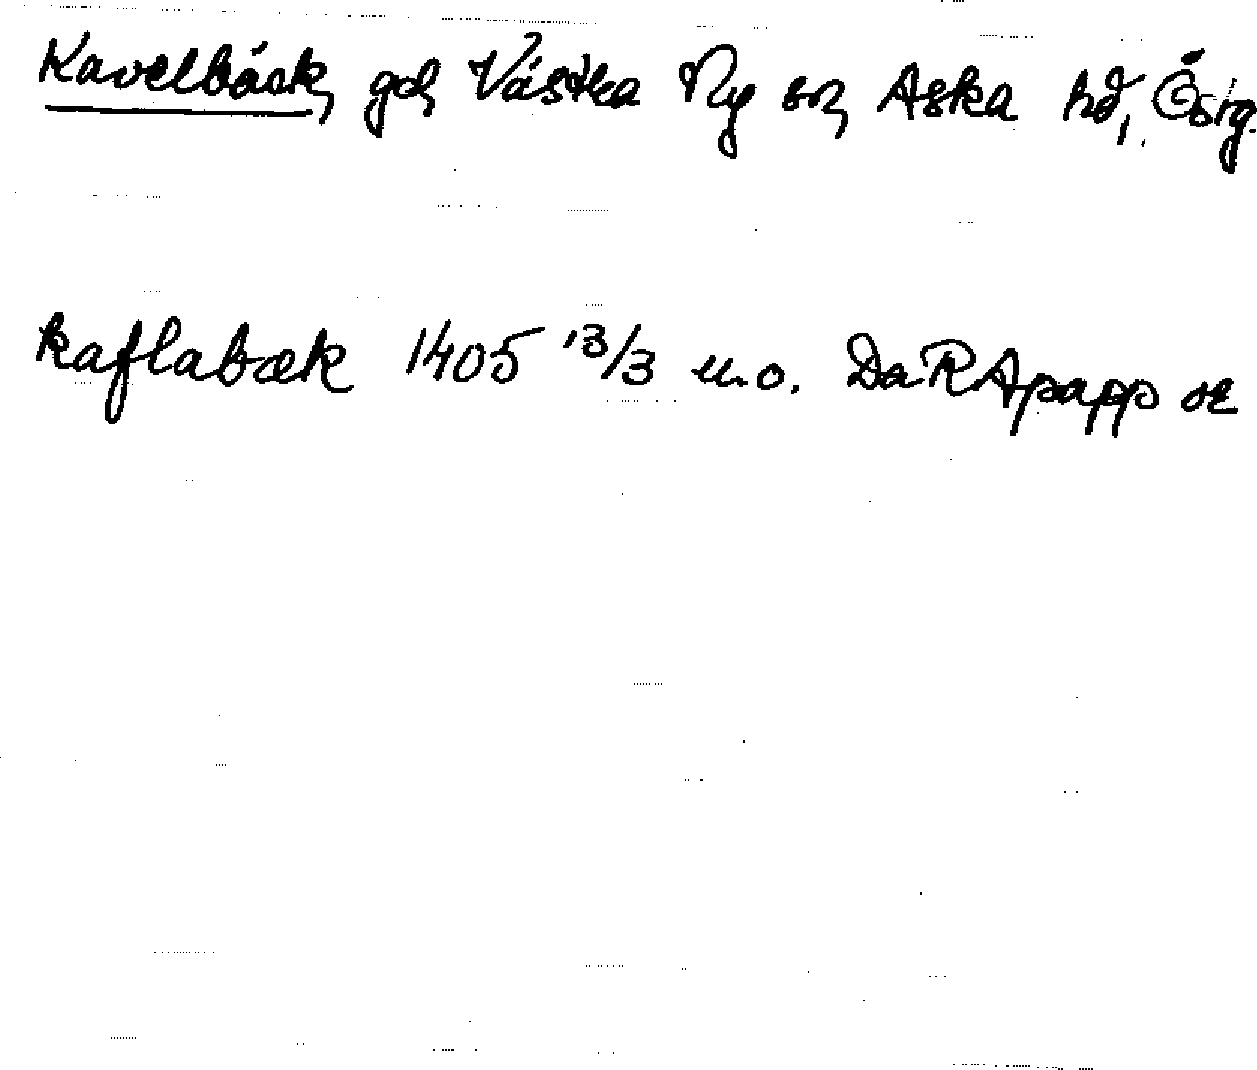 Kavelbäck, gd, Västra Ny sn, Aska hd, Östg.
kaflabæk 1405 13/3 u.o. DaRApapp or